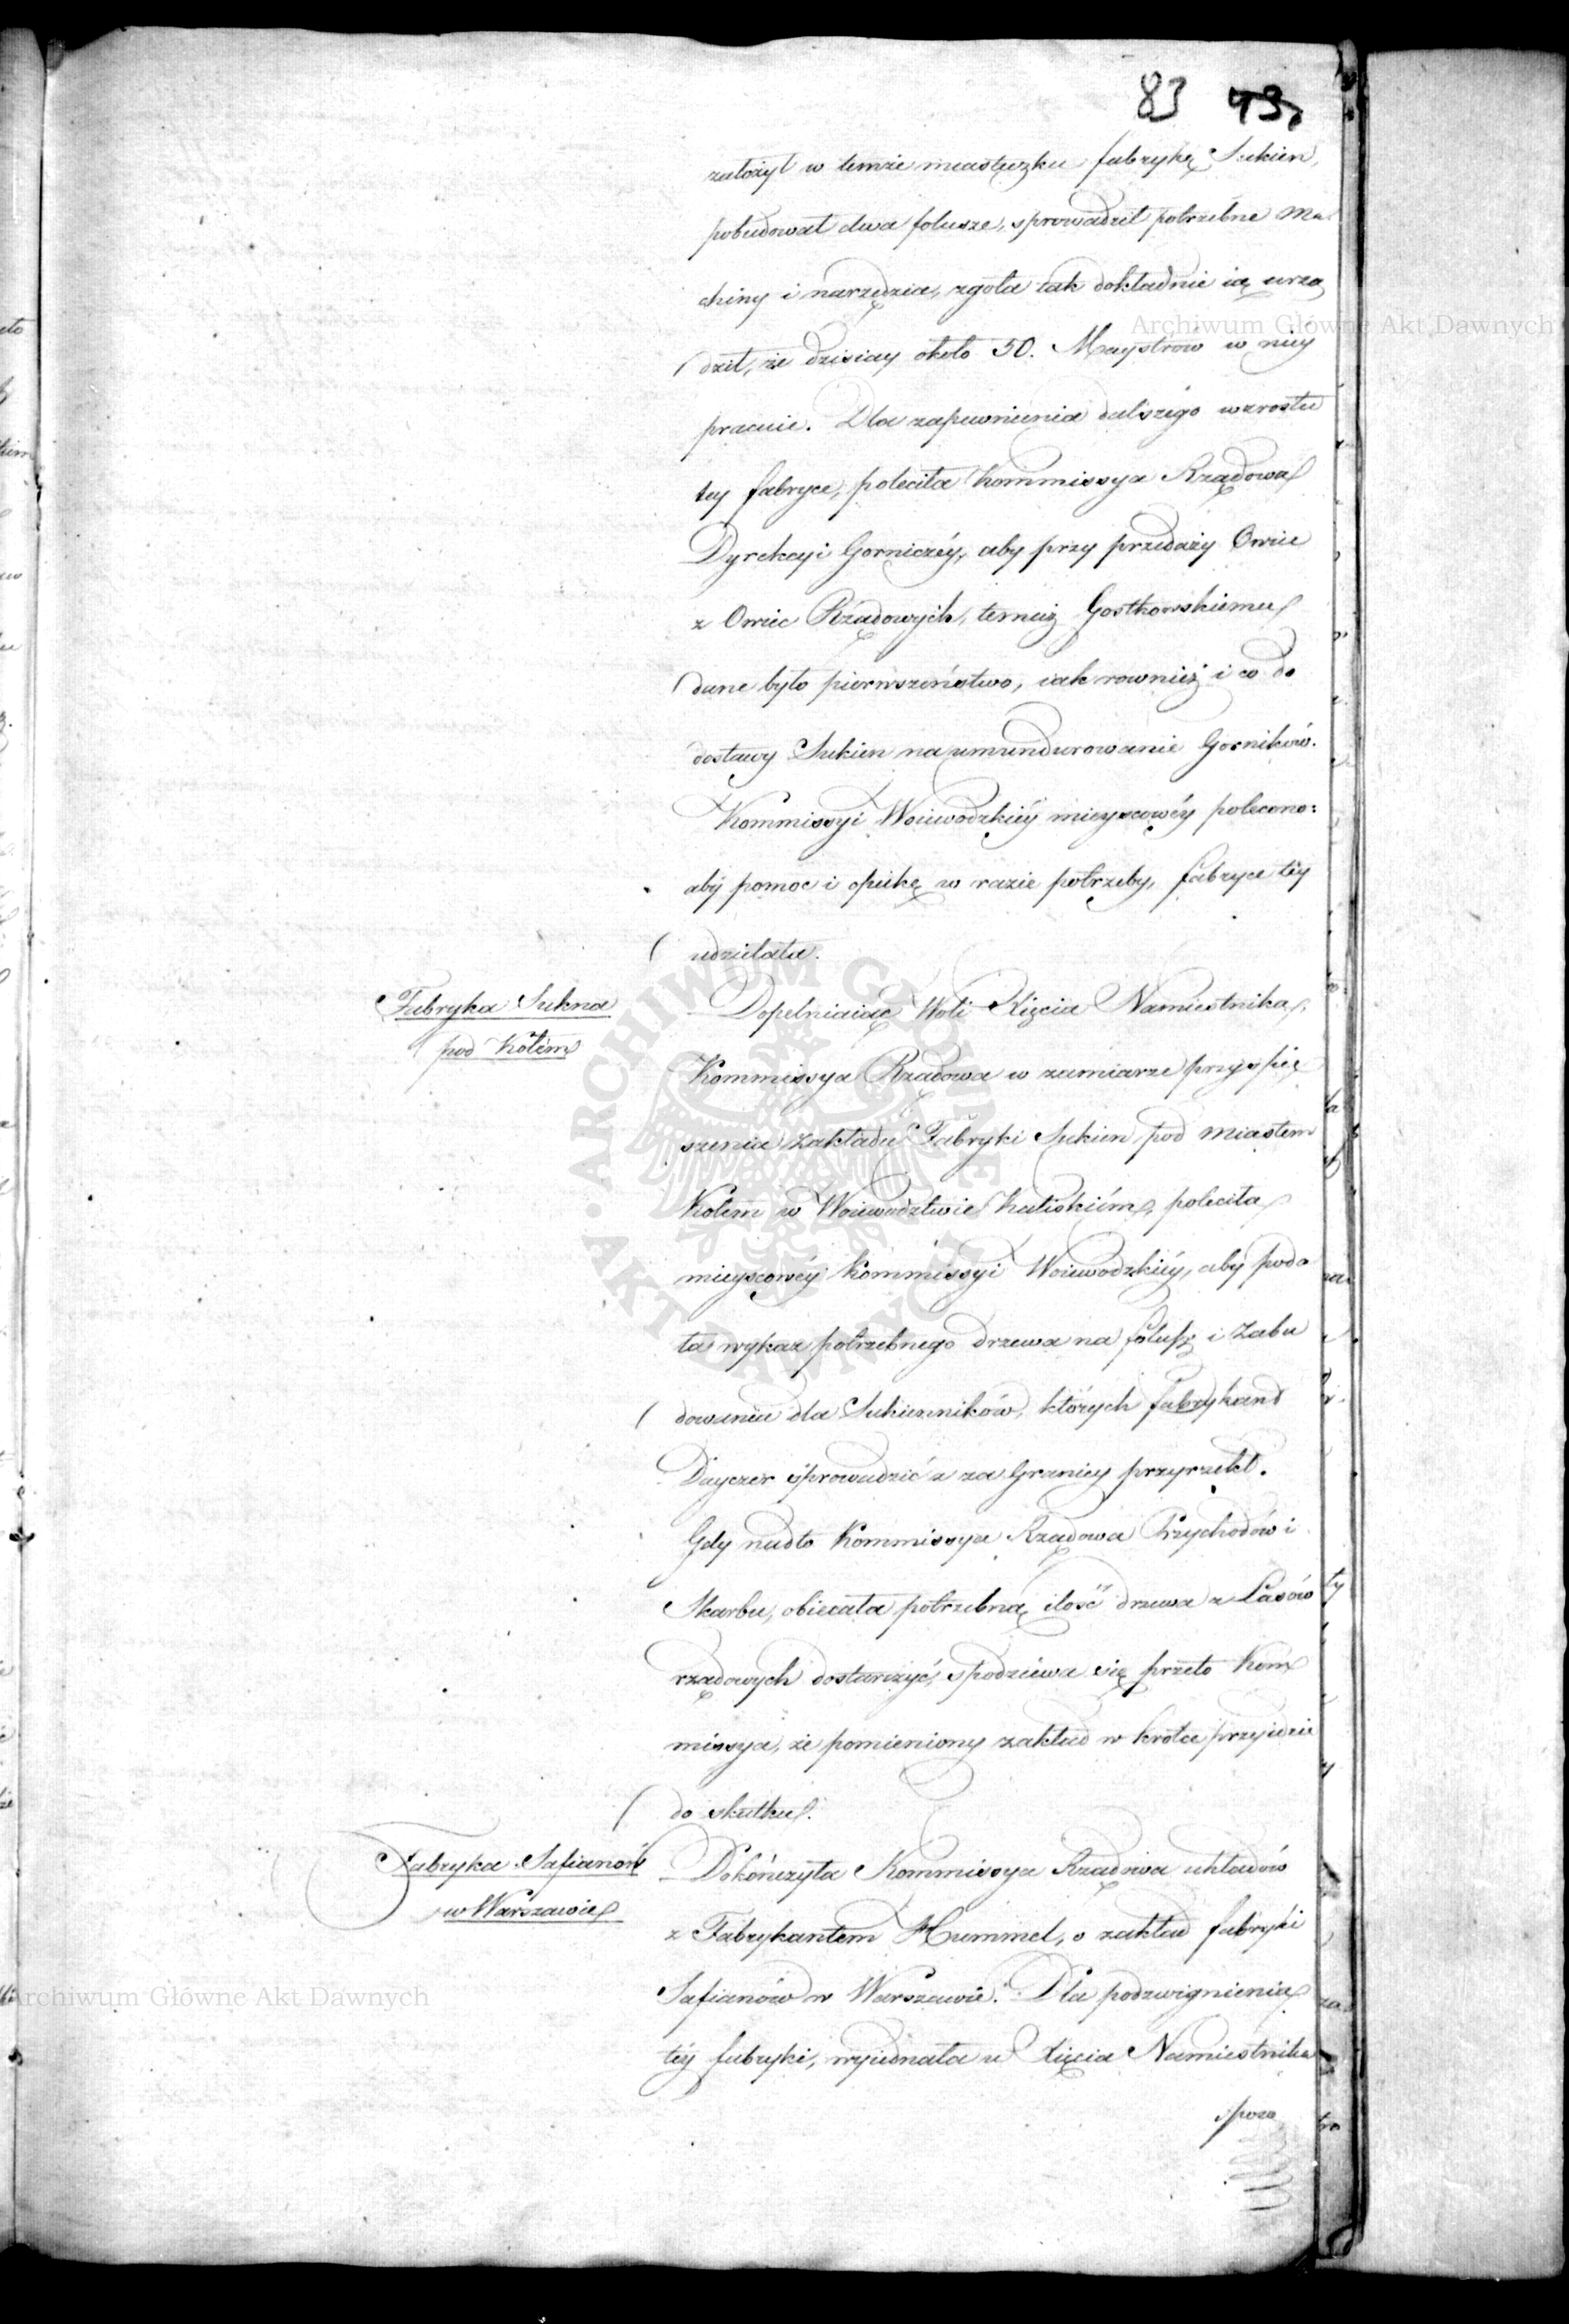 83 43.
założył w temże miasteczku fabrykę Sukien,
pobudował dwa folusze, sprowadził potrzebne ma-
chiny i narzędzia, zgoła tak dokładnie ią urzą
dził, że dzisiay około 50. Maystrow w niey
pracuie. Dla zapewnienia dalszego wzrostu
tey fabryce, poleciła Kommissya Rządowa
Dyrekcyi Gorniczéy, aby przy przedaży Owiec
z Owiec Rządowych, temuż Gostkowskiemu
dane było pierwszeństwo, iak rownież i co do
dostawy Sukien na umundurowanie Gorników.
Kommissyi Woiewodzkiéy mieyscowéy polecono:
aby pomoc i opiekę w razie potrzeby, fabryce téy
udzielała.
Fabryka Sukna
pod Kołem
Dopełniaiąc Woli Xięcia Namiestnika,
Kommissya Rządowa w zamiarze przyspie
szenia Zakładu Fabryki Sukien pod miastem
Kołem w Woiewodztwie Kaliskiém, poleciła
mieyscowéy Kommissyi Woiewodzkiéy, aby poda
ła wykaz potrzebnego drzewa na folusz i Zabu
dowania dla Sukienników, których fabrykant
Dayczer sprowadzić z za Granicy przyrzekł.
Gdy nadto Kommissya Rządowa Przychodów i
Skarbu, obiecała potrzebną ilość drzewa z Lasów
rządowych dostarczyć, spodziéwa się przeto Kom
missya, że pomieniony zakład w krotce przyidzie
do skutku.
Fabryka Safianów
w Warszawie
Dokończyła Kommissya Rządowa układów
z Fabrykantem Hummel, o zakład fabryki
Safianów w Warszawie. Dla podzwignienia
téy fabryki, wyiednała u Xięcia Namiestnika
Archiwum Główne Akt Dawnych
Archiwum Główne Akt Dawnych
ARCHIWUM GŁÓWNE AKT DAWNYCH